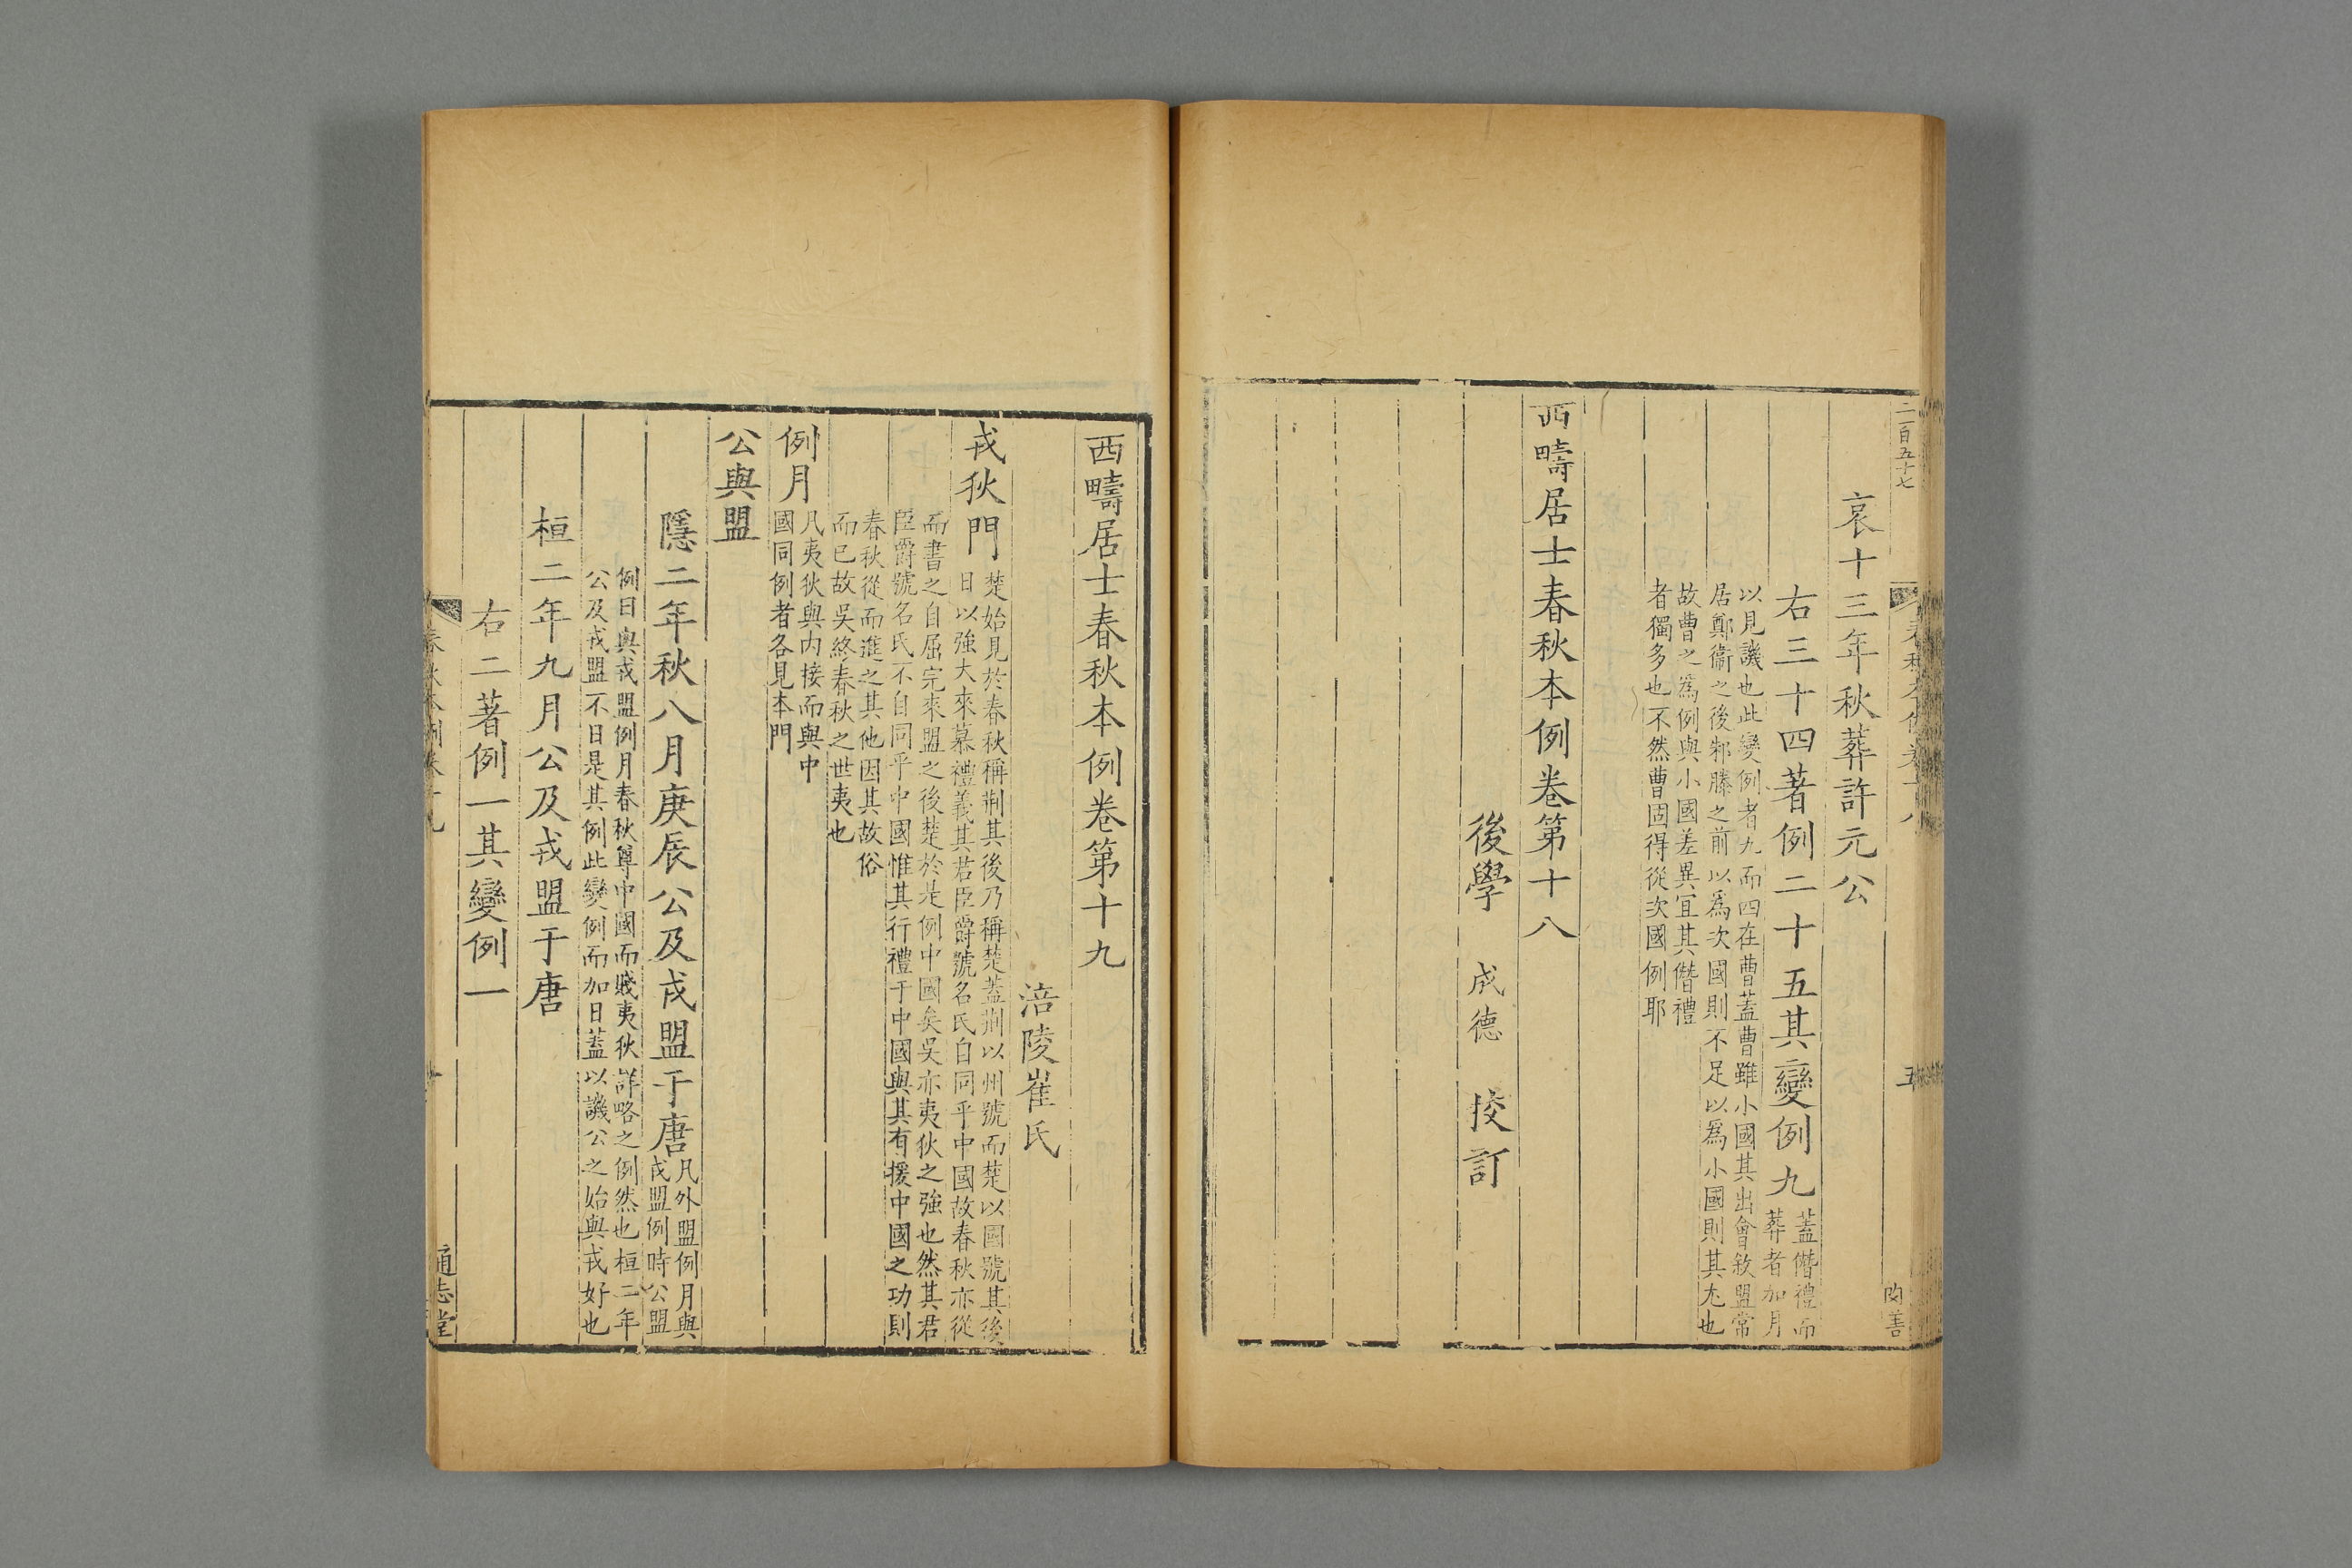 二百五十七
五
閔善
哀十三年秋葬許元公
右三十四著例二十五其變例九蓋僭禮而
葬者加月
以見譏也此變例者九而四在曹蓋曹雖小國其出會敘盟常
居鄭衞之後邾滕之前以爲次國則不足以爲小國則其尤也
故曹之爲例與小國差異宜其僭禮
者獨多也不然曹固得從次國例耶
西疇居士春秋本例卷第十八
後學 成德 挍訂
西疇居士春秋本例卷第十九
涪陵崔氏
戎狄門楚始見於春秋稱荆其後乃稱楚蓋荆以州號而楚以國號其後
日以強大來慕禮義其君臣爵號名氏自同乎中國故春秋亦從
而書之自屈完來盟之後楚於是例中國矣吳亦夷狄之強也然其君
臣爵號名氏不自同乎中國惟其行禮于中國與其有援中國之功則
春秋從而進之其他因其故俗
而已故吳終春秋之世夷也
例月凡夷狄與内接而與中
國同例者各見本門
公與盟
隱二年秋八月庚辰公及戎盟于唐凡外盟例月與
戎盟例時公盟
例日與戎盟例月春秋尊中國而賤夷狄詳略之例然也桓二年
公及戎盟不日是其例此變例而加日蓋以譏公之始與戎好也
桓二年九月公及戎盟于唐
右二著例一其變例一
春秋本例卷十九
通志堂